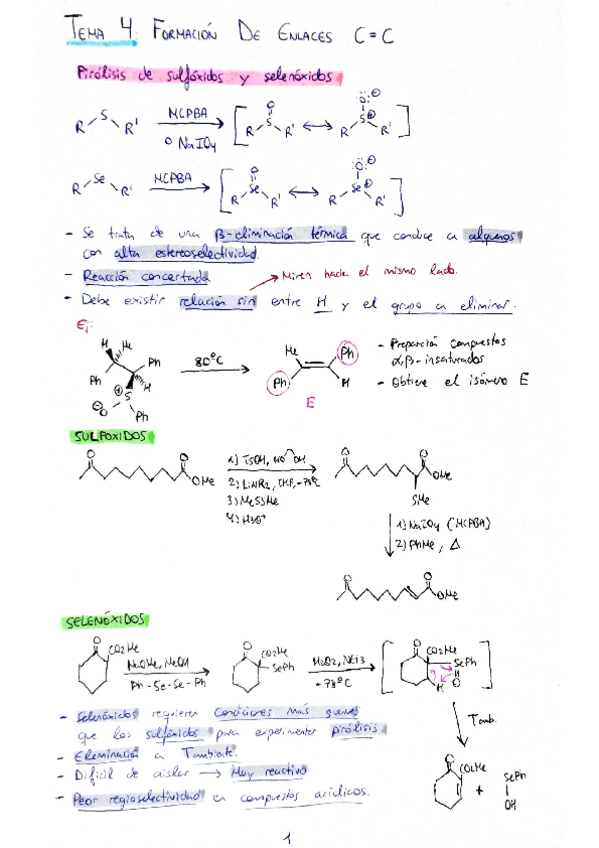 TEMA 4: FORMACIÓN DE ENLACES C=C
Pirólisis de sulfóxidos y selenóxidos
R S R' MCPBA O NaIO4 R S O R' R S R' O
R Se R' MCPBA R Se O R' R Se R' O
- Se trata de una β-eliminación térmica que conduce a alquenos
con alta estereoselectividad.
- Reacción concertada → Miren hacia el mismo lado.
- Debe existir relación sin entre H y el grupo a eliminar.
Ej:
H Me Ph H Ph S O Ph 80°C Me Ph Ph H E
- Preparación compuestos
α,β-insaturados
- Obtiene el isómero E
SULFÓXIDOS
O O OMe
1) TsOH, HO OH
2) LiNR2, THF, -78°C
3) MeSSMe
4) H3O+
O O OMe SMe
1) NaIO4 (MCPBA)
2) PhMe, Δ
O O OMe
SELENÓXIDOS
O CO2Me NaOMe, MeOH Ph-Se-Se-Ph O CO2Me SePh H2O2, NEt3 -78°C O CO2Me SePh O H
- Selenóxidos requieren condiciones más suaves
que los sulfóxidos para experimentar pirólisis.
- Eliminación a Tambiente.
- Difícil de aislar → Muy reactivo
- Peor regioselectividad en compuestos acíclicos.
Tamb.
O CO2Me + SePh OH
1